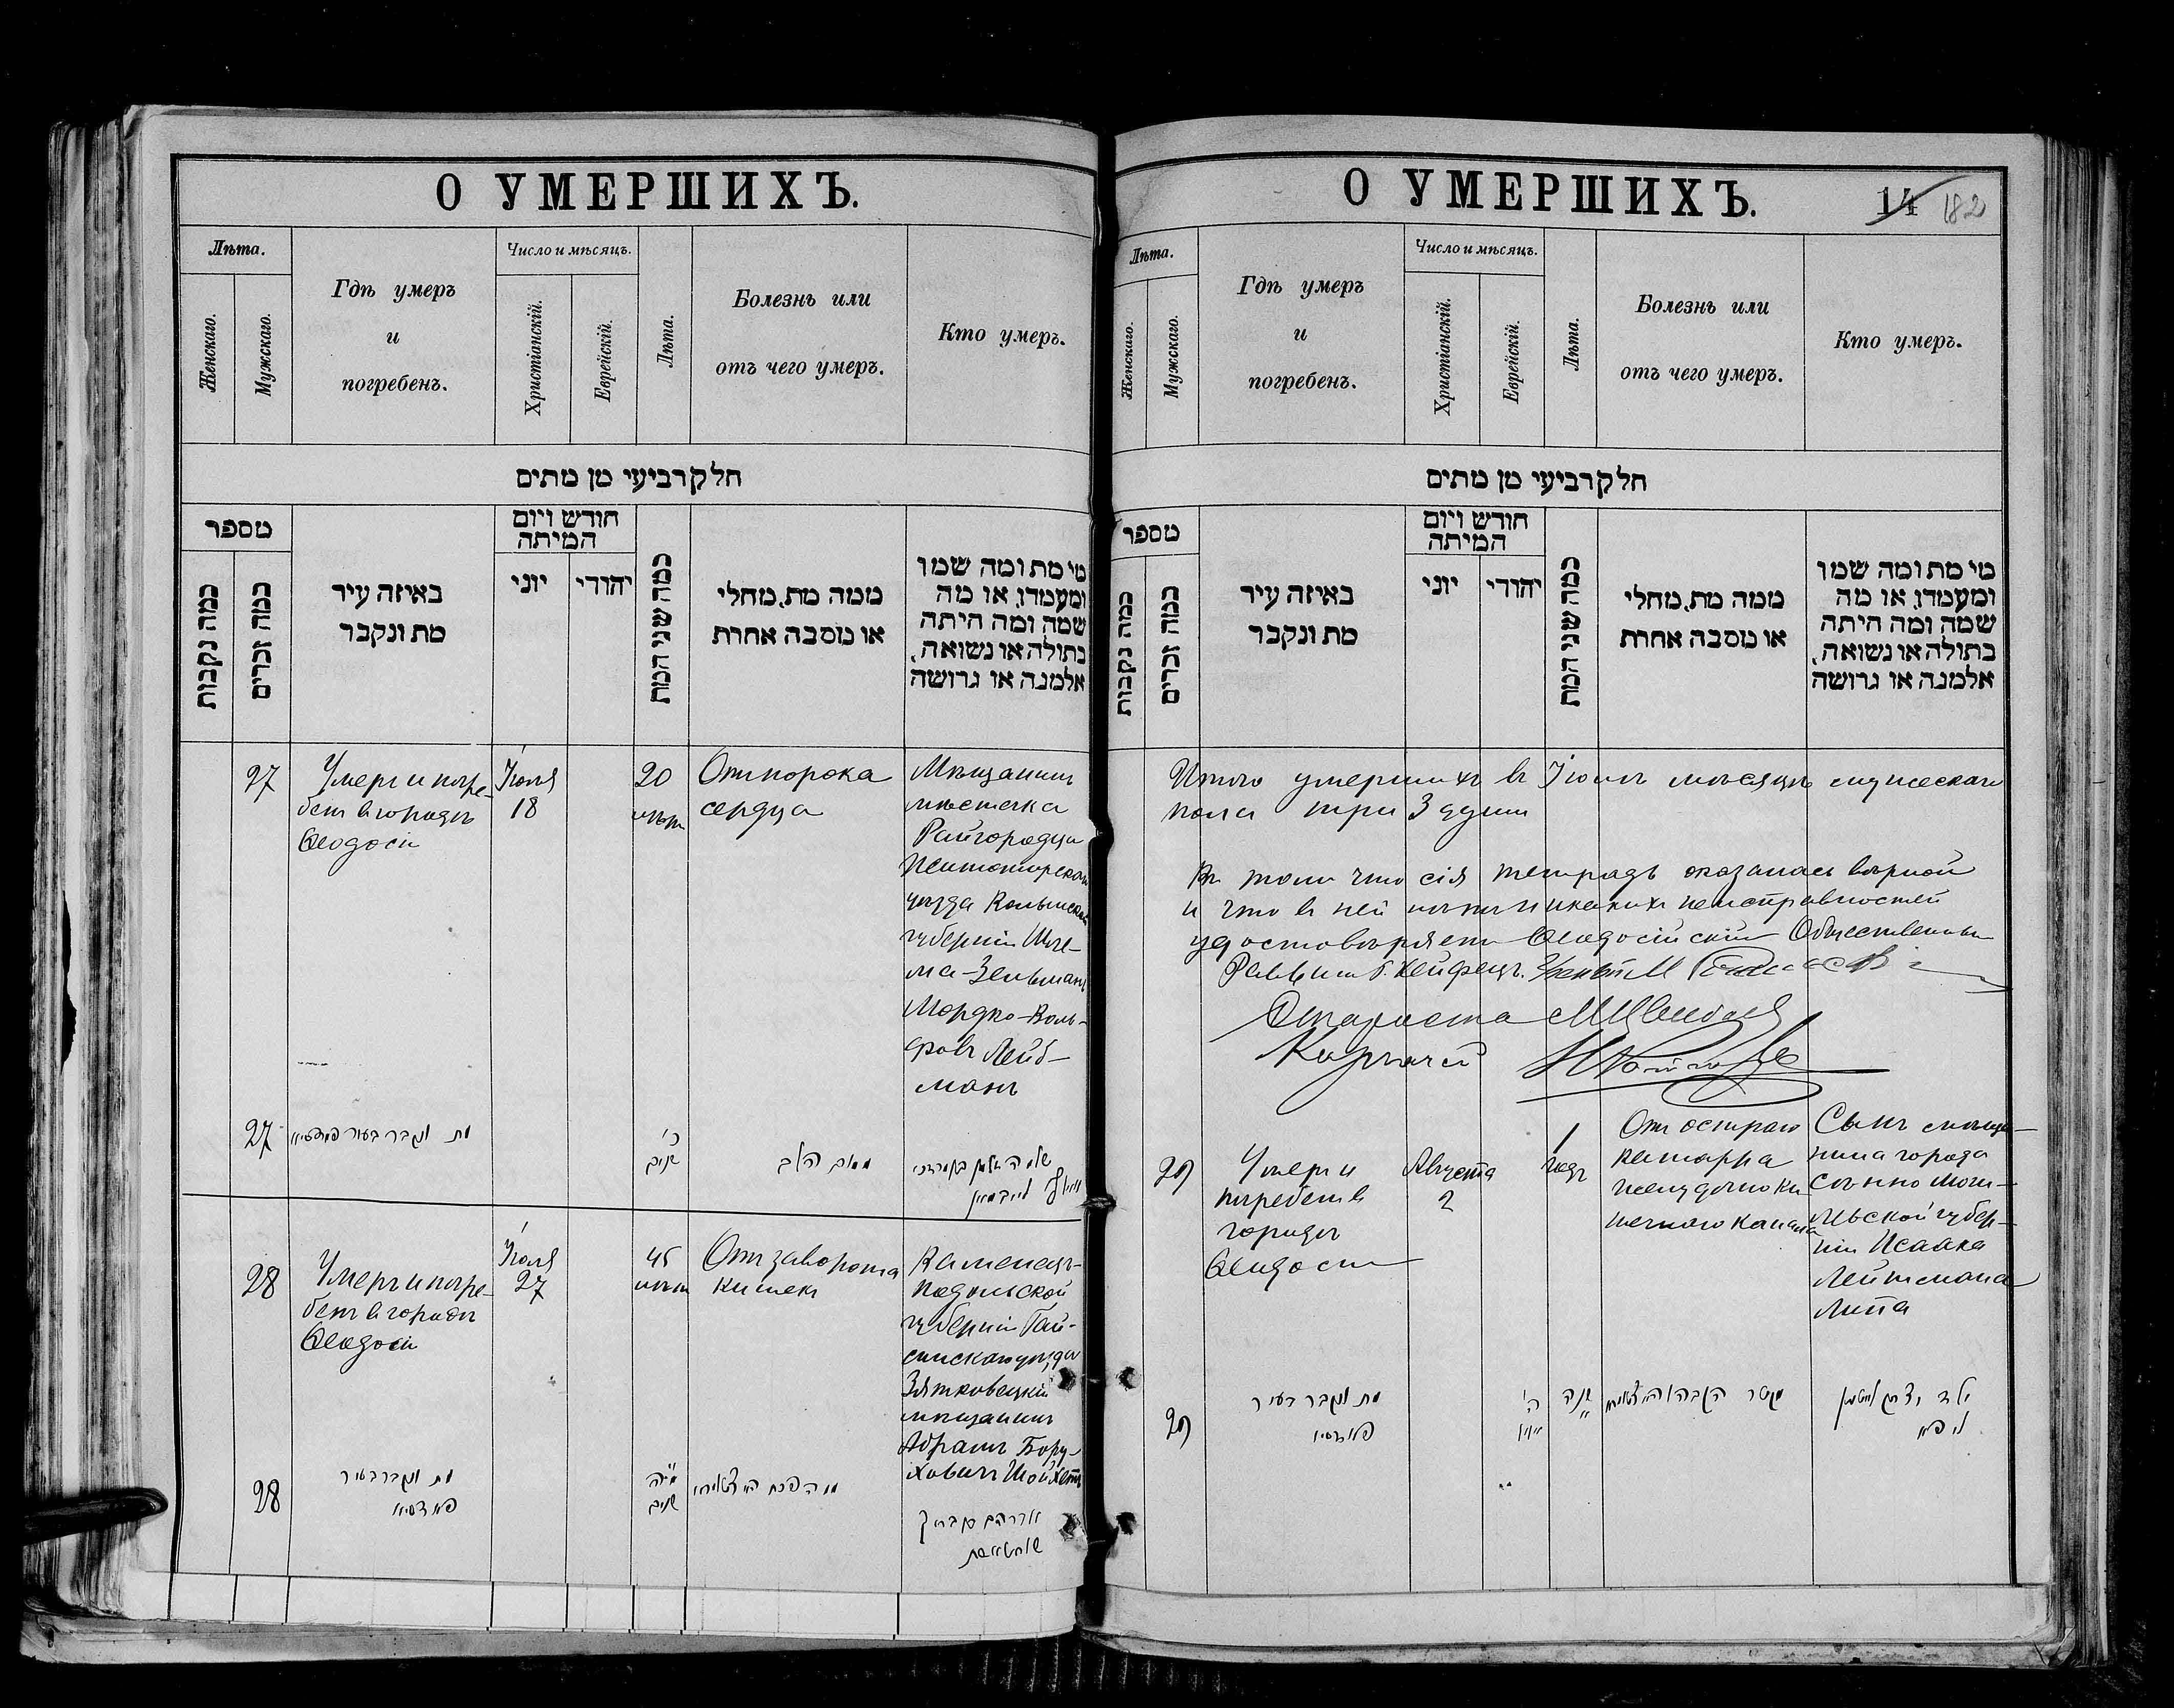 О УМЕРШИХЪ.
Лѣта.
Женскаго.
Мужскаго.
Гдѣ умеръ
и
погребенъ.
Число и мѣсяцъ.
Христіанскій.
Еврейскій.
Лѣта.
Болезнь или
отъ чего умеръ.
Кто умеръ.
חלק רביעי מן מתים
מספר
כמה נקבות
כמה זכרים
באיזה עיר
מת ונקבר
חודש ויום
המיתה
יוני
יהודי
כמה שני המת
ממה מת, מחלי
או מסבה אחרת
מי מת ומה שמו
ומעמדו, או מה
שמה ומה היתה
בתולה או נשואה,
אלמנה או גרושה
27
Умеръ и погре-
бенъ въ городѣ
Ѳеодосіи
Іюля
18
20
лѣтъ
Отъ порока
сердца
Мѣщанинъ
мѣстечка
Райгородка
Житомирскаго
уѣзда Волынской
губерніи Шле-
ма-Зельманъ
Мордко-Воль-
фовъ Лейб-
манъ
27
מת ונקבר בעיר פעאדסיא
כ'
שנים
הלב
שלמה זלמן
לייבמאן
28
Умеръ и погре-
бенъ въ городѣ
Ѳеодосіи
Іюля
27
45
лѣтъ
Отъ заворота
кишекъ
Каменецъ-
Подольской
губерніи Гай-
синскаго уѣзда
Зятковецкій
мѣщанинъ
Абрамъ Бору-
ховичъ Шойхетъ
28
מת ונקבר בעיר
פעאדסיא
מ"ה
שנים
О УМЕРШИХЪ.
14 182
Лѣта.
Женскаго.
Мужскаго.
Гдѣ умеръ
и
погребенъ.
Число и мѣсяцъ.
Христіанскій.
Еврейскій.
Лѣта.
Болезнь или
отъ чего умеръ.
Кто умеръ.
חלק רביעי מן מתים
מספר
כמה נקבות
כמה זכרים
באיזה עיר
מת ונקבר
חודש ויום
המיתה
יוני
יהודי
כמה שני המת
ממה מת, מחלי
או מסבה אחרת
מי מת ומה שמו
ומעמדו, או מה
שמה ומה היתה
בתולה או נשואה,
אלמנה או גרושה
Итого умершихъ въ Іюлѣ мѣсяцѣ мужескаго
пола три 3 души
Въ томъ что сія тетрадь оказалась вѣрной
и что въ ней нѣтъ никакихъ неисправностей
удостовѣряетъ Ѳеодосійскій Общественный
Раввинъ Г. Хейфецъ.
Староста
Казначей
29
Умеръ и
погребенъ въ
городѣ
Ѳеодосіи
Августа
2
1
годъ
Отъ остраго
катарра
желудочно ки-
шечнаго канала
Сынъ мѣща-
нина города
Сѣнно Моги-
льской губер-
ніи Исаака
Лейтмана
Липа
29
מת ונקבר בעיר
פעאדסיא
שנה
ילד יצחק לייטמאן
ליפא